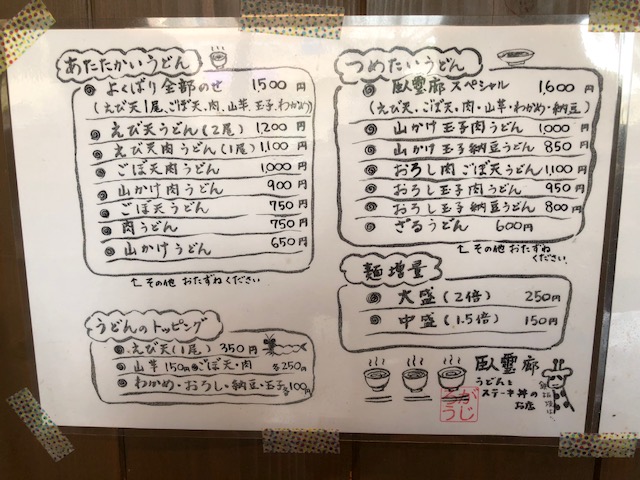 あたたかいうどん
よくばり全部のせ 1500円
(えび天1尾、ごぼ天、肉、山芋、玉子、わかめ)
えび天うどん(2尾) 1,200円
えび天肉うどん(1尾) 1,100円
ごぼ天肉うどん 1,000円
山かけ肉うどん 900円
ごぼ天うどん 750円
肉うどん 750円
山かけうどん 650円
その他 おたずねください
うどんのトッピング
えび天(1尾) 350円
山芋 150円 ごぼ天・肉 各250円
わかめ・おろし・納豆・玉子 各100円
つめたいうどん
臥雲廊スペシャル 1,600円
(えび天・ごぼ天・肉・山芋・わかめ・納豆)
山かけ玉子肉うどん 1,000円
山かけ玉子納豆うどん 850円
おろし肉ごぼ天うどん 1,100円
おろし玉子肉うどん 950円
おろし玉子納豆うどん 800円
ざるうどん 600円
その他 おたずねください
麺増量
大盛(2倍) 250円
中盛(1.5倍) 150円
臥雲廊
うどんと
ステーキ丼の
お店